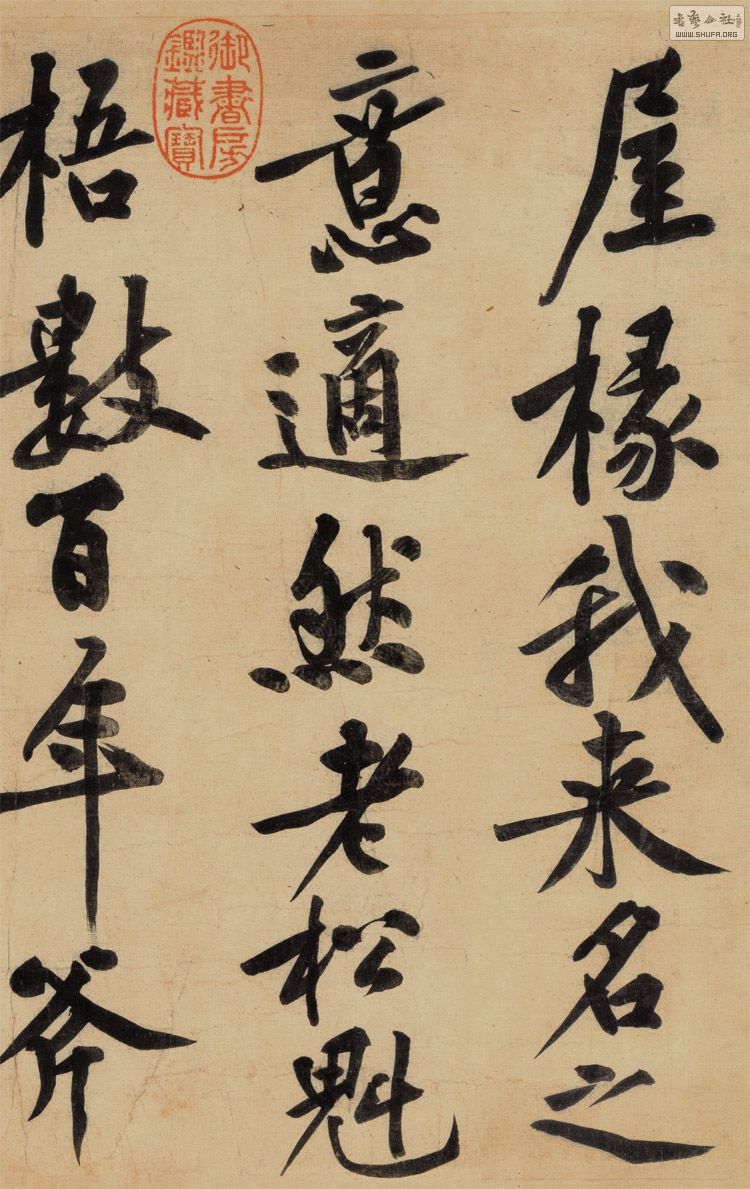 屋椽我来名之
意適然老松魁
梧數百年斧
御書房鑑藏寶
書藝公社
www.SHUFA.ORG